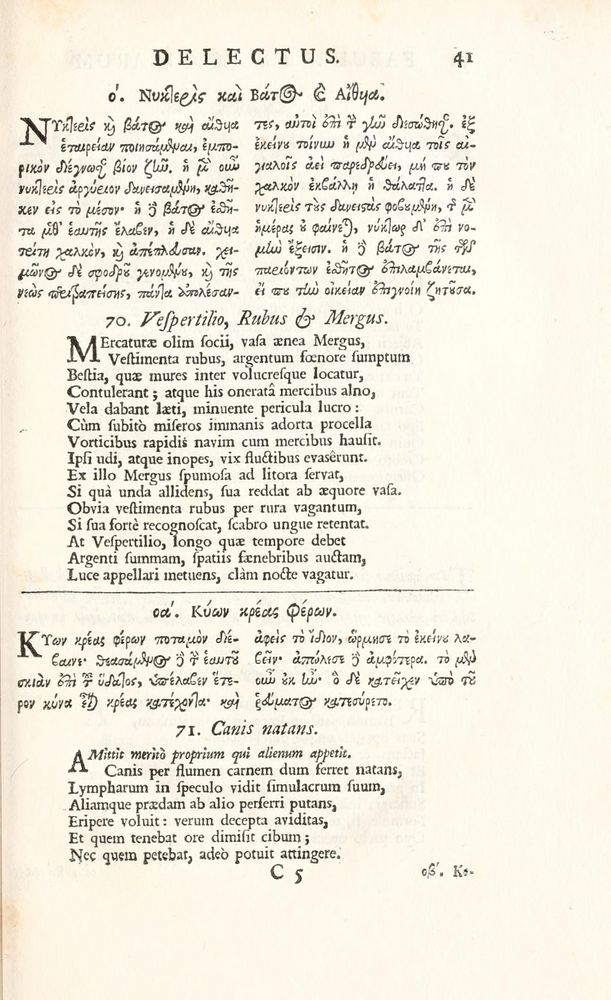 DELECTUS. 41
ο'. Νυκτερὶς καὶ Βάτος & Αἴθυα.
ΝΥκτερὶς καὶ βάτος καὶ αἴθυα
ἑταιρείαν ποιησάμεναι, ἐμπο-
ρικὸν διέγνωσαν βίον ζῆν. ἡ μὲν οὖν
νυκτερὶς ἀργύριον δανεισαμένη, καθῆ-
κεν εἰς τὸ μέσον· ἡ δὲ βάτος ἐσθῆ-
τα μεθ' ἑαυτῆς ἔλαβεν, ἡ δὲ αἴθυα
τρίτη χαλκὸν, καὶ ἀπέπλευσαν. χει-
μῶνος δὲ σφοδροῦ γενομένου, καὶ τῆς
νεὼς περιτραπείσης, πάντα ἀπολέσαν-
τες, αὐτοὶ ἐπὶ τὴν γῆν διεσώθησαν. ἐξ
ἐκείνου τοίνυν ἡ μὲν αἴθυα τοῖς αἰ-
γιαλοῖς ἀεὶ παρεδρεύει, μή που τὸν
χαλκὸν ἐκβάλλῃ ἡ θάλαττα. ἡ δὲ
νυκτερὶς τοὺς δανειστὰς φοβουμένη, τῆς μὲν
ἡμέρας οὐ φαίνεται, νύκτωρ δ' ἐπὶ νο-
μὴν ἔξεισιν. ἡ δὲ βάτος τῆς τῶν
παριόντων ἐσθῆτος ἐπιλαμβάνεται,
εἴ που τὴν οἰκείαν ἐπιγνοίη ζητοῦσα.
70. Vespertilio, Rubus & Mergus.
MErcaturæ olim socii, vasa ænea Mergus,
Vestimenta rubus, argentum fœnore sumptum
Bestia, quæ mures inter volucresque locatur,
Contulerant; atque his oneratâ mercibus alno,
Vela dabant læti, minuente pericula lucro:
Cùm subitò miseros immanis adorta procella
Vorticibus rapidis navim cum mercibus hausit.
Ipsi udi, atque inopes, vix fluctibus evasêrunt.
Ex illo Mergus spumosa ad litora servat,
Si quà unda allidens, sua reddat ab æquore vasa.
Obvia vestimenta rubus per rura vagantum,
Si sua fortè recognoscat, scabro ungue retentat.
At Vespertilio, longo quæ tempore debet
Argenti summam, spatiis fænebribus auctam,
Luce appellari metuens, clàm nocte vagatur.
οα'. Κύων κρέας φέρων.
ΚΥων κρέας φέρων ποταμὸν διέ-
βαινε· θεασάμενος δὲ τὴν ἑαυτοῦ
σκιὰν ἐπὶ τοῦ ὕδατος, ὑπέλαβεν ἕτε-
ρον κύνα εἶναι κρέας κατέχοντα· καὶ
ἀφεὶς τὸ ἴδιον, ὥρμησε τὸ ἐκείνου λα-
βεῖν· ἀπώλεσε δὲ ἀμφότερα. τὸ μὲν
οὖν οὐκ ἦν· ὃ δὲ κατεῖχεν ὑπὸ τοῦ
ῥεύματος κατεσύρετο.
71. Canis natans.
AMittit meritò proprium qui alienum appetit.
Canis per flumen carnem dum ferret natans,
Lympharum in speculo vidit simulacrum suum,
Aliamque prædam ab alio perferri putans,
Eripere voluit: verum decepta aviditas,
Et quem tenebat ore dimisit cibum;
Nec quem petebat, adeò potuit attingere.
C 5 οβ'. Κό-